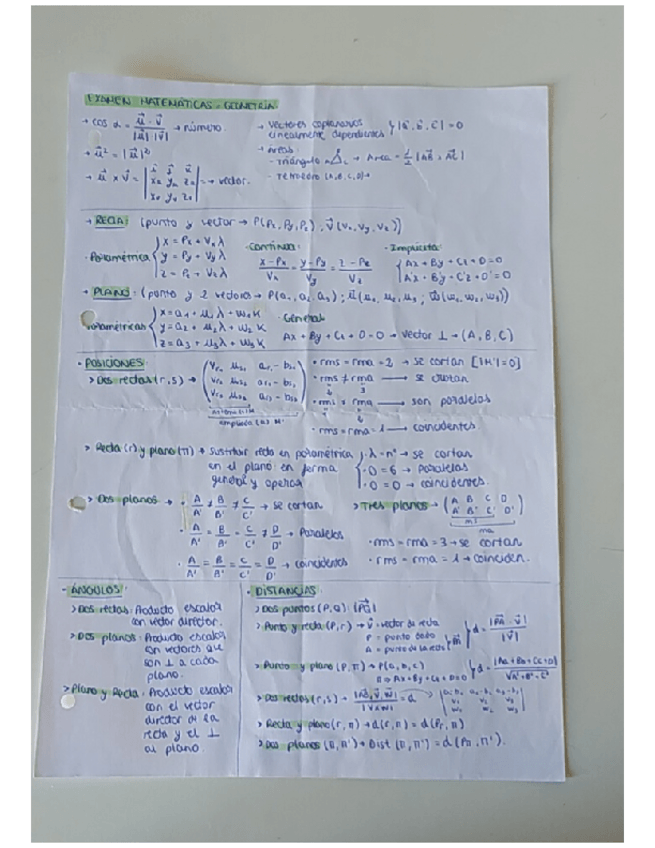 EXAMEN MATEMÁTICAS - GEOMETRÍA
→ cos α = u⃗ · v⃗ / |u⃗| · |v⃗| → número.
→ u⃗² = |u⃗|²
→ u⃗ x v⃗ = → vector.
→ vectores coplanarios linealmente dependientes } |a⃗, b⃗, c⃗| = 0
→ Áreas:
- Triángulo → Area = 1/2 |AB⃗ x AC⃗|
- Tetraedro (A,B,C,D) →
→ RECTA: (punto y vector → P(Px, Py, Pz), v⃗(vx, vy, vz))
· Paramétrica { x = Px + Vx λ
y = Py + Vy λ
z = Pz + Vz λ
· Continua:
x - Px / Vx = y - Py / Vy = z - Pz / Vz
· Implícita:
{ Ax + By + Cz + D = 0
A'x + B'y + C'z + D' = 0
→ PLANO: (punto y 2 vectores → P(a₁, a₂, a₃); u⃗(u₁, u₂, u₃; w⃗(w₁, w₂, w₃))
Paramétricas { x = a₁ + u₁λ + w₁K
y = a₂ + u₂λ + w₂K
z = a₃ + u₃λ + w₃K
· General
Ax + By + Cz + D = 0 → vector ⊥ → (A, B, C)
· POSICIONES:
> Dos rectas (r, s) →
ampliada (a) M'
· rms = rma = 2 → se cortan [|M'| = 0]
· rms ≠ rma → se cruzan
2 3
· rms ≠ rma → son paralelos
1 2
· rms = rma = 1 → coincidentes
> Recta (r) y plano (π) → sustituir recta en paramétrica
en el plano en forma
general y operar
{ · λ = nº → se cortan
· 0 = 6 → Paralelas
· 0 = 0 → coincidentes.
> Dos planos → · A/A' ≠ B/B' ≠ C/C' → se cortan
· A/A' = B/B' = C/C' ≠ D/D' → Paralelos
· A/A' = B/B' = C/C' = D/D' → coincidentes
> Tres planos → ( A B C D
A' B' C' D' )
ms
ma
· rms = rma = 3 → se cortan
· rms = rma = 1 → coinciden.
· ÁNGULOS:
> Dos rectas: Producto escalar
con vector director.
> Dos planos: Producto escalar
con vectores que
son ⊥ a cada
plano.
> Plano y Recta: Producto escalar
con el vector
director de la
recta y el ⊥
al plano.
· DISTANCIAS:
> Dos puntos (P,Q) |PQ⃗|
> Punto y recta (P, r) → v⃗ = vector de recta
P = punto dado
A = punto de la recta
d = |PA⃗ x v⃗| / |v⃗|
> Punto y plano (P, π) → P(a, b, c)
π → Ax + By + Cz + D = 0
d = |Aa + Bb + Cc + D| / √A² + B² + C²
> Dos rectas (r, s) → |AB⃗, v⃗, w⃗| / |v⃗ x w⃗| = d
> Recta y plano (r, π) → d(r, π) = d(Pr, π)
> Dos planos (π, π') → Dist (π, π') = d(Pπ, π').